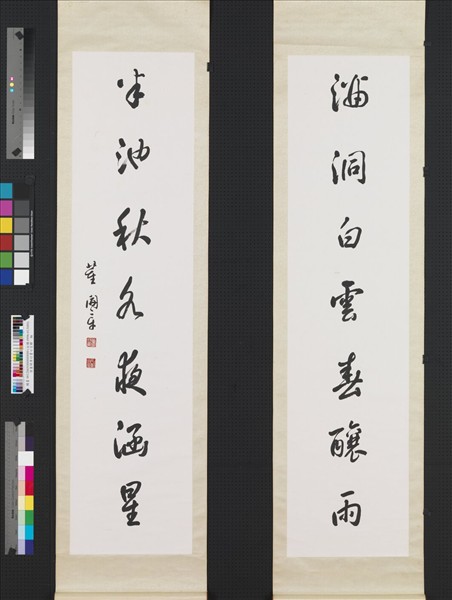 滿洞白雲春釀雨
半池秋水夜涵星
董開章